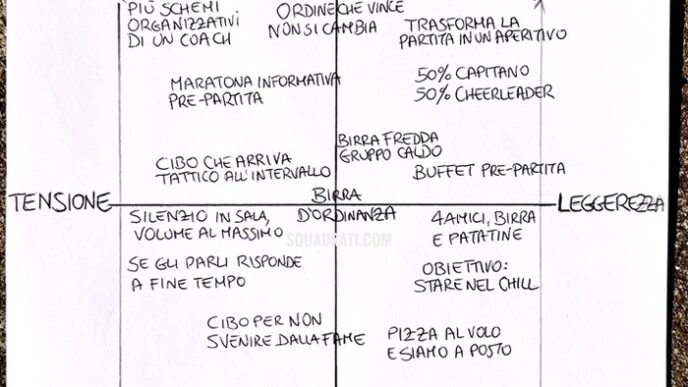 PIÙ SCHEMI
ORGANIZZATIVI
DI UN COACH
ORDINE CHE VINCE
NON SI CAMBIA
TRASFORMA LA
PARTITA IN UN APERITIVO
MARATONA INFORMATIVA
PRE-PARTITA
50% CAPITANO
50% CHEERLEADER
BIRRA FREDDA
GRUPPO CALDO
CIBO CHE ARRIVA
TATTICO ALL'INTERVALLO
BUFFET PRE-PARTITA
TENSIONE
BIRRA
D'ORDINANZA
LEGGEREZZA
SILENZIO IN SALA,
VOLUME AL MASSIMO
4 AMICI, BIRRA
E PATATINE
SQUADRATI.COM
SE GLI PARLI RISPONDE
A FINE TEMPO
OBIETTIVO:
STARE NEL CHILL
CIBO PER NON
SVENIRE DALLA FAME
PIZZA AL VOLO
E SIAMO A POSTO